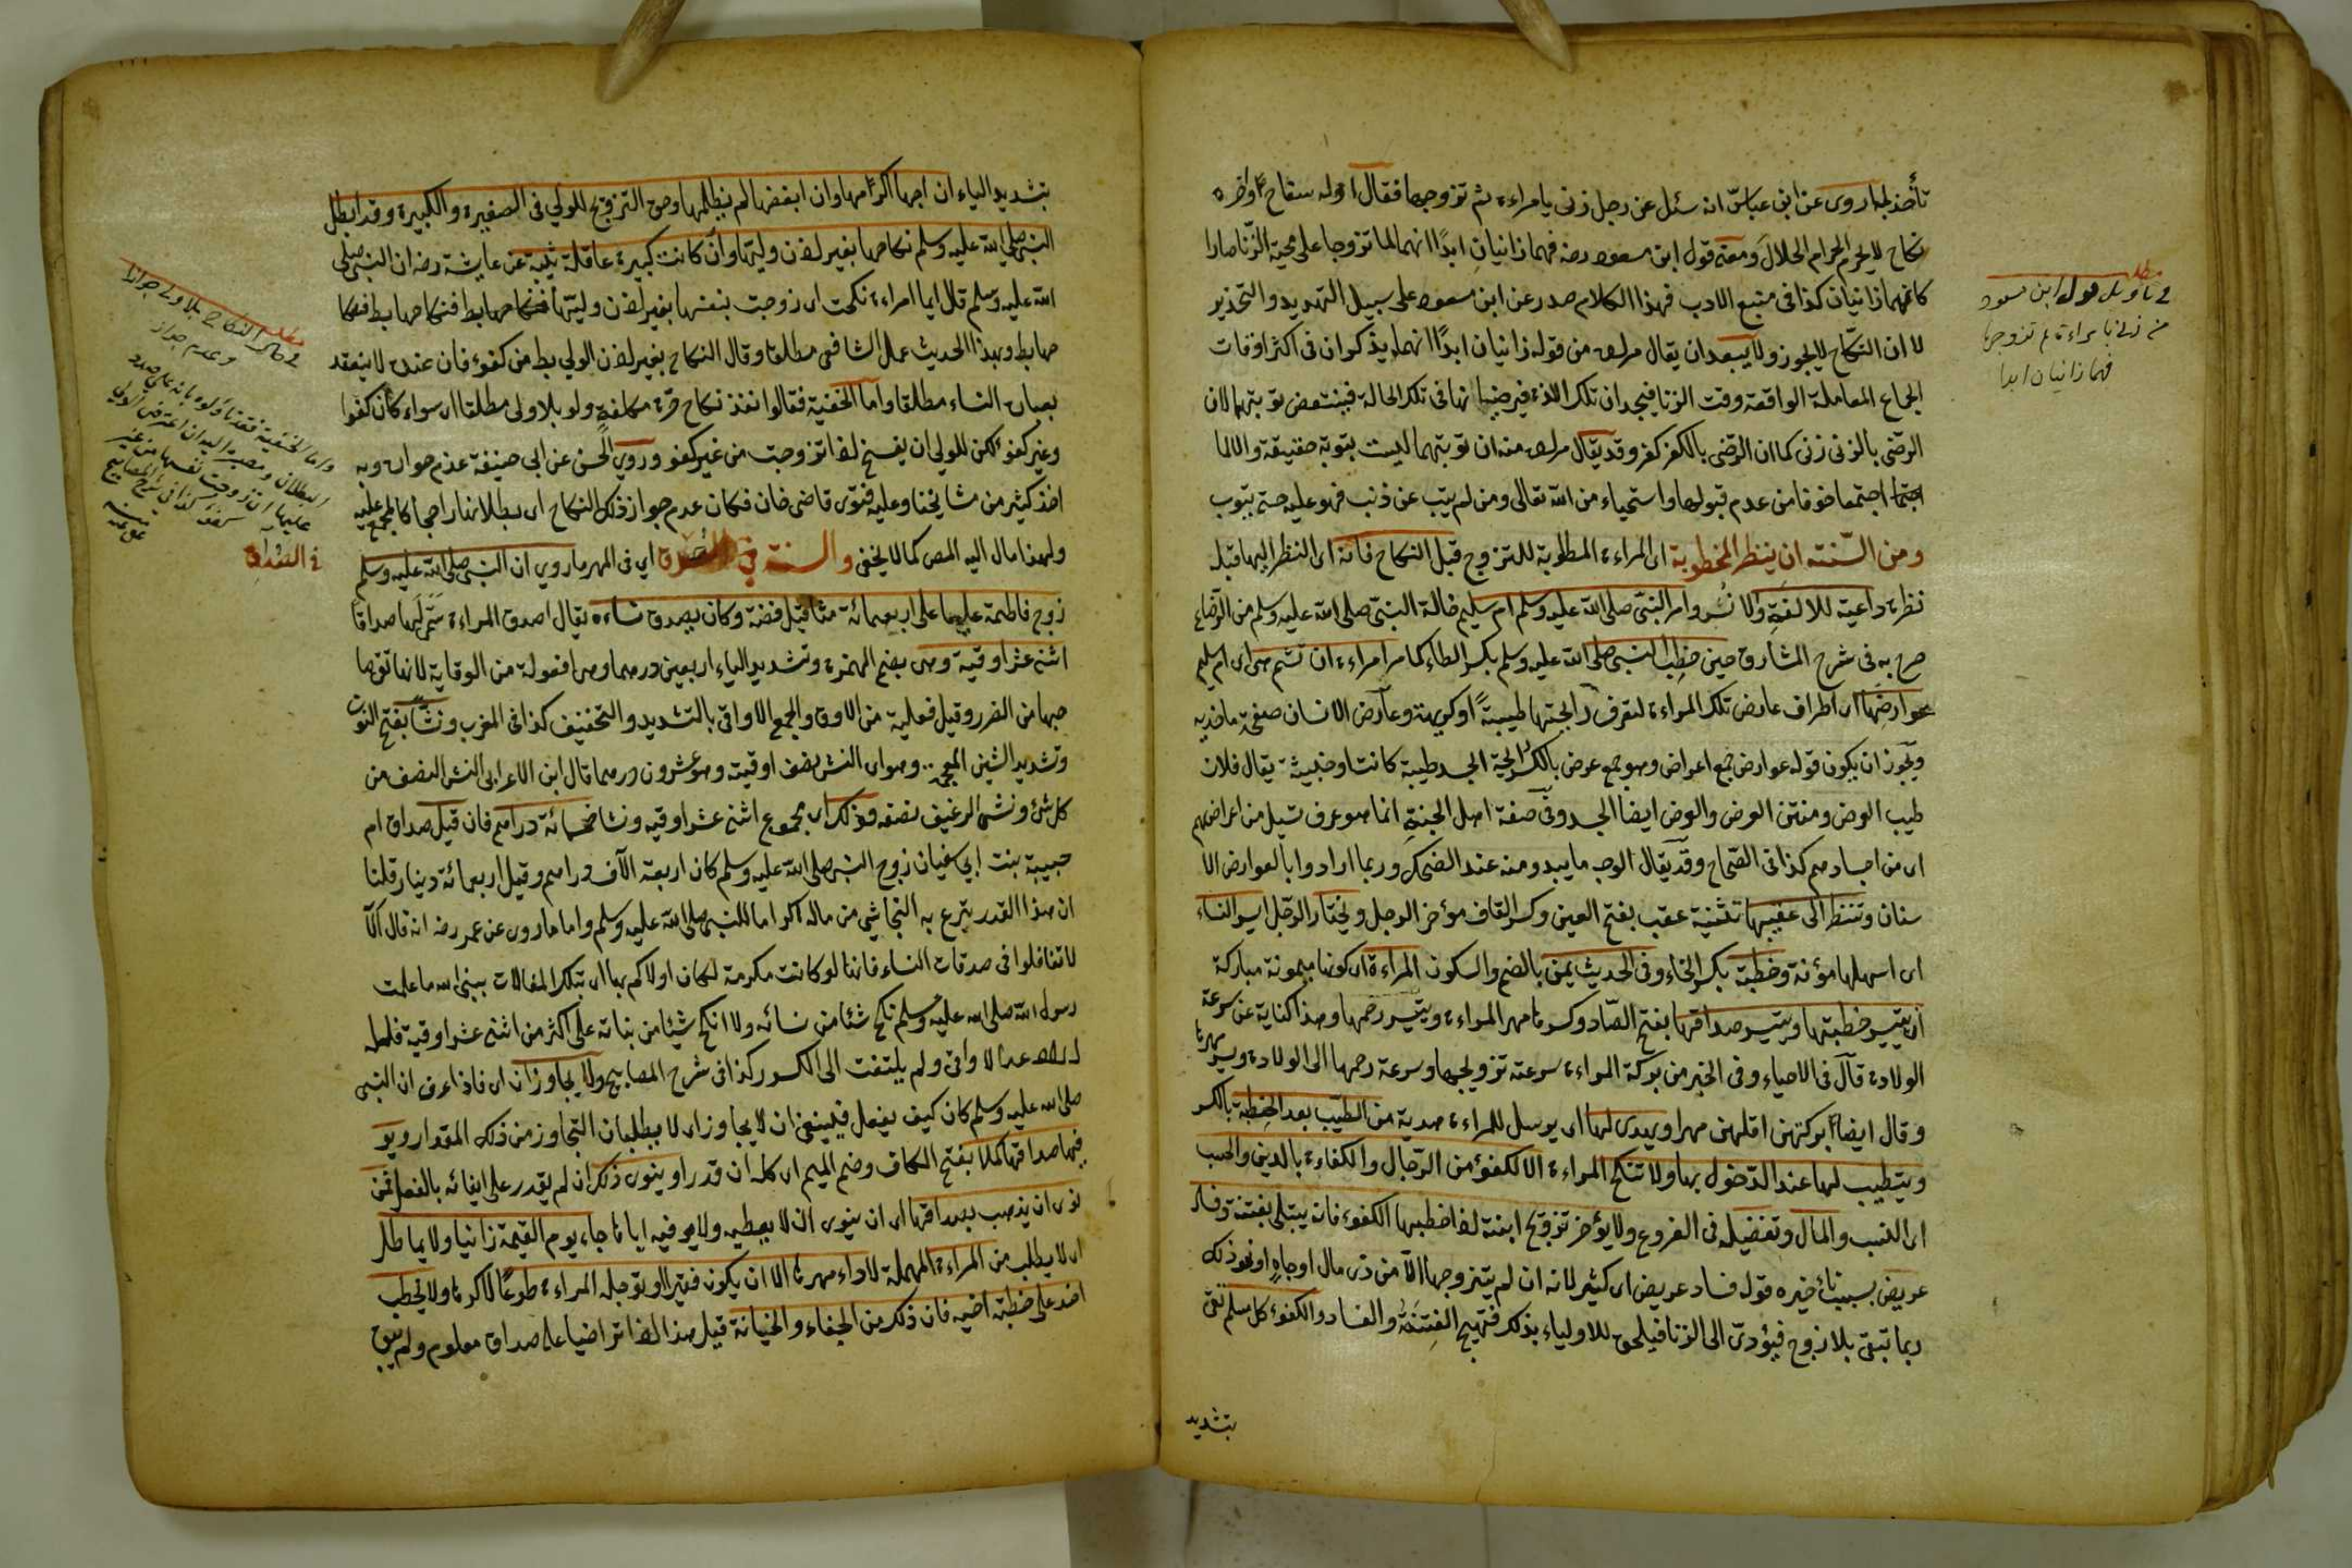 تأخذ لما روى عن ابن عباس انه سئل عن رجل زنى بامراءة ثم تزوجها فقال اوله سفاح واخره
نكاح لا يحرم الحرام الحلال ومعنى قول ابن مسعود رضه فهما زانيان ابدًا انهما لما تزوجا على محبة الزنا صارا
كانهما زانيان كذا في منبع الادب فهذا الكلام صدر عن ابن مسعود على سبيل التهديد والتحذير
لا ان النكاح لا يجوز ولا يبعد ان يقال مراده من قوله زانيان ابدًا انهما يذكران في اكثر اوقات
الجماع المعاملة الواقعة وقت الزنا فيجدان تلك اللذة فيرضيانها في تلك الحالة فينتقض توبتهما لان
الرضى بالزنى زنى كما ان الرضى بالكفر كفر وقد يقال مراده منه ان توبتهما ليست بتوبة حقيقة والا لما
اجتمعا خوفا من عدم قبولها واستحياء من الله تعالى ومن لم يتب عن ذنب فهو عليه حتى يتوب
ومن السنته ان ينظر المخطوبة اى المراءة المطلوبة للتزوج قبل النكاح فانه اى النظر اليها قبل
نظرة داعية للالفة والانس وامر النبى صلى الله عليه وسلم ام سليم خالة النبى صلى الله عليه وسلم من الرضاع
صرح به فى شرح المشارق حين خطب النبى صلى الله عليه وسلم بكسر الطاء كما مر امراءة ان تشم هى اى ام سليم
عوارضها اى اطراف عارض تلك المراءة لتعرف رايحتها طيبة او كريهة وعارض الانسان صفحة ما خديه
ويجوز ان يكون قوله عوارض جمع اعراض وهو جمع عرض بالكسر رايحة الجسد طيبة كانت او خبيثة يقال فلان
طيب العرض ومنتن العرض والعرض ايضا الجسد وفى صفة اهل الجنة انما هو عرق تسيل من اعراضهم
اى من اجسادهم كذا فى الصحاح وقد يقال الوجه ما يبدو منه عند الضحك وربما ارادوا بالعوارض الا
سنان وتنظر الى عقبيها تثنية عقب بفتح العين وكسر القاف مؤخر الرجل ويختار الرجل ايسر النساء
اى اسهلها مؤنة وخطبة بكسر الخاء وفى الحديث يمن بالضم والسكون المراءة اى كونها ميمونة مباركة
ان يتيسر خطبتها ويتيسر صداقها بفتح الصاد وكسرها مهر المراءة ويتيسر رحمها وهذا كناية عن سرعة
الولادة قال فى الاحياء وفى الخبر من بركة المراءة سرعته تزويجها وسرعة رحمها الى الولادة ويسر مهرها
وقال ايضا ابركتهن اقلهن مهرا ويهدى لها اى يرسل للمراءة هدية من الطيب بعد الخطبة بالكسر
ويتطيب لها عند الدخول بها ولا تنكح المراءة الا لكفؤ من الرجال والكفاءة بالدين والحسب
اى النسب والمال وتفضيله فى الفروع ولا يؤخر تزويج ابنته اذا خطبها الكفوء فانه يبتلى بفتنة وفساد
عريض بسبب تأخيره قوله فساد عريض اى كثير لانه ان لم يتزوجها الا من ذى مال او جاه او نحو ذلك
ربما تبقى بلا زوج فيؤدى الى الزنا فيلحق للاولياء بذلك فتهيج الفتنة والفساد والكفوء كل مسلم تقى
بتشديد
مطلب
فى تاويل قول ابن مسعود
من زنى بامراءة ثم تزوجها
فهما زانيان ابدا
بتشديد الياء ان احبها اكرمها وان ابغضها لم يظلمها وحق التزويج للولي فى الصغيرة والكبيرة وقد ابطل
النبى صلى الله عليه وسلم نكاحها بغير اذن وليها وان كانت كبيرة عاقلة ثيبة عن عايشة رضه ان النبى صلى
الله عليه وسلم قال ايما امراءة نكحت اى زوجت بنفسها بغير اذن وليها فنكاحها بط فنكاحها بط فنكا
حها بط وبهذا الحديث عمل الشافعى مطلقا وقال النكاح بغير اذن الولي بط من كفوء فان عنده لا ينعقد
بعبارة النساء مطلقا واما الحنفية فقالوا نفذ نكاح حرة مكلفة ولو بلا ولى مطلقا اى سواء كان كفوا
وغير كفو لكن للولي ان يفسخ اذا تزوجت من غير كفو وروى الحسن عن ابي حنيفة عدم جوازه وبه
اخذ كثير من مشايخنا وعليه فتوى قاضى خان فكان عدم جواز ذلك النكاح اى بطلانه راجحا كالمجمع عليه
ولهذا مال اليه المص كما لا يخفى والسنة في الصداق اي فى المهر ما روي ان النبى صلى الله عليه وسلم
زوج فاطمة عليها على اربعمائة مثاقيل فضة وكان يصدق نساءه يقال اصدق المراءة سمى لها صداقا
اثنى عشر اوقية وهى بضم الهمزة وتشديد الياء اربعين درهما وهى افعولة من الوقاية لانها تقى صا
حبها من الضرر وقيل فعلية من الاوق والجمع الاواقى بالتشديد والتخفيف كذا فى المغرب ونشا بفتح النون
وتشديد الشين المعجمة وهو اى النش نصف اوقية وهو عشرون درهما قال ابن الاعرابى النش النصف من
كل شئ ونش الرغيف نصفه فذلك اى مجموع اثنى عشر اوقيه ونشا خمسمائة دراهم فان قيل صداق ام
حبيبة بنت ابي سفيان زوج النبى صلى الله عليه وسلم كان اربعة الآف دراهم وقيل اربعمائة دينار قلنا
ان هذا القدر تبرع به النجاشي من ماله اكراما للنبى صلى الله عليه وسلم واما ما روى عن عمر رضه انه قال الا
لا تغالوا فى صدقات النساء فانها لو كانت مكرمة لكان اولاكم بها اى بتلك المغالات نبى الله ما علمت
رسول الله صلى الله عليه وسلم نكح شئا من نسائه ولا انكح شيئا من بناته على اكثر من اثنى عشر اوقية فلعله
اراد عدد الاواقى ولم يلتفت الى الكسور كذا فى شرح المصابيح ولا يجاوزان اى فاذا عرف ان النبى
صلى الله عليه وسلم كان كيف يفعل فينبغى ان لا يجاوزا اى لا يطلبان التجاوز من ذلك المقدار ويو
فيها صداقها كملا بفتح الكاف وضم الميم اى كله ان قدر او ينوى ذلك ان لم يقدر على ايفائه بالفعل فمن
نوى ان يذهب بصداقها اى ان ينوى ان لا يعطيه ولا يوفيه اياها جاء يوم القيمة زانيا ولا يماطل
اى لا يطلب من المراءة المهملة لاداء مهرها الا ان يكون فقيرا او توجله المراءة طوعًا لا كرها ولا يخطب
احد على خطبة اخيه فان ذلك من الجفاء والخيانة قيل هذا اذا تراضيا على صداق معلوم ولم يبق
مطلب
فى حكم النكاح بلا ولى جوازا
وعدم جواز
فى الصداق